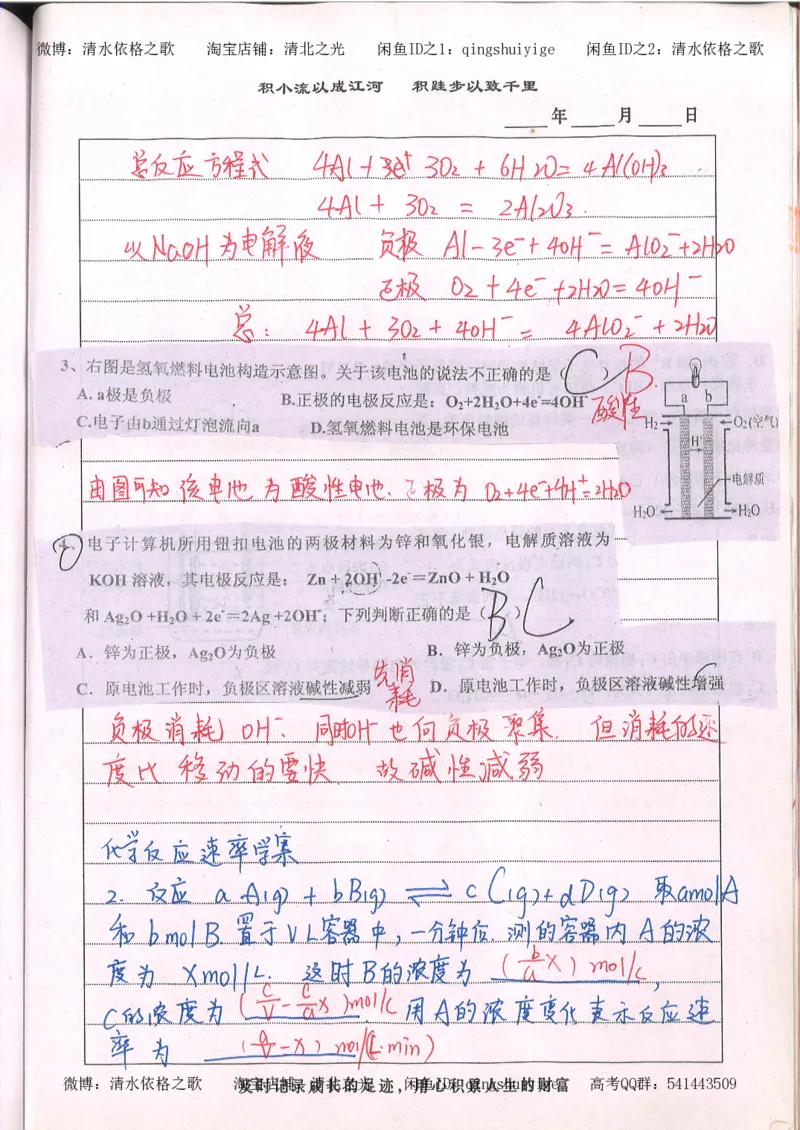 微博：清水依格之歌 淘宝店铺：清北之光 闲鱼ID之1：qingshuiyige 闲鱼ID之2：清水依格之歌
积小流以成江河 积跬步以致千里
年 月 日
总反应方程式 4Al + 3O₂ + 6H₂O = 4Al(OH)₃
4Al + 3O₂ = 2Al₂O₃.
以NaOH为电解液 负极 Al-3e⁻+4OH⁻=AlO₂⁻+2H₂O
正极 O₂+4e⁻+2H₂O=4OH⁻
总: 4Al + 3O₂ + 4OH⁻ = 4AlO₂⁻ + 2H₂O
3、右图是氢氧燃料电池构造示意图。关于该电池的说法不正确的是（C）B.
A. a极是负极 B.正极的电极反应是：O₂+2H₂O+4e⁻=4OH⁻ 酸性
C.电子由b通过灯泡流向a D.氢氧燃料电池是环保电池
a b
H₂ O₂(空气)
H⁺
电解质
H₂O H₂O
由图可知该电池为酸性电池. 正极为 O₂+4e⁻+4H⁺=2H₂O
4、电子计算机所用钮扣电池的两极材料为锌和氧化银，电解质溶液为
KOH 溶液，其电极反应是： Zn + 2OH⁻ -2e⁻=ZnO + H₂O
和 Ag₂O +H₂O + 2e⁻=2Ag +2OH⁻；下列判断正确的是（BC）
A．锌为正极，Ag₂O为负极 B．锌为负极，Ag₂O为正极
C．原电池工作时，负极区溶液碱性减弱 先消耗 D．原电池工作时，负极区溶液碱性增强
负极消耗 OH⁻. 同时OH⁻也向负极聚集. 但消耗的速
度比 移动的要快 故碱性减弱
化学反应速率学案
2. 反应 a A(g) + b B(g) ⇌ c C(g) + d D(g) 取amolA
和 b mol B. 置于 V L容器中, 一分钟后. 测的容器内 A的浓
度为 X mol/L. 这时B的浓度为 (b/a X) mol/L,
C的浓度为 (c/V - c/a X) mol/L 用A的浓度变化表示反应速
率为 (a/V - X) mol/(L·min)
微博：清水依格之歌 淘宝店铺：清北之光 闲鱼ID：qingshuiyige 高考QQ群：541443509
及时记录成长的足迹，用心积累人生的财富